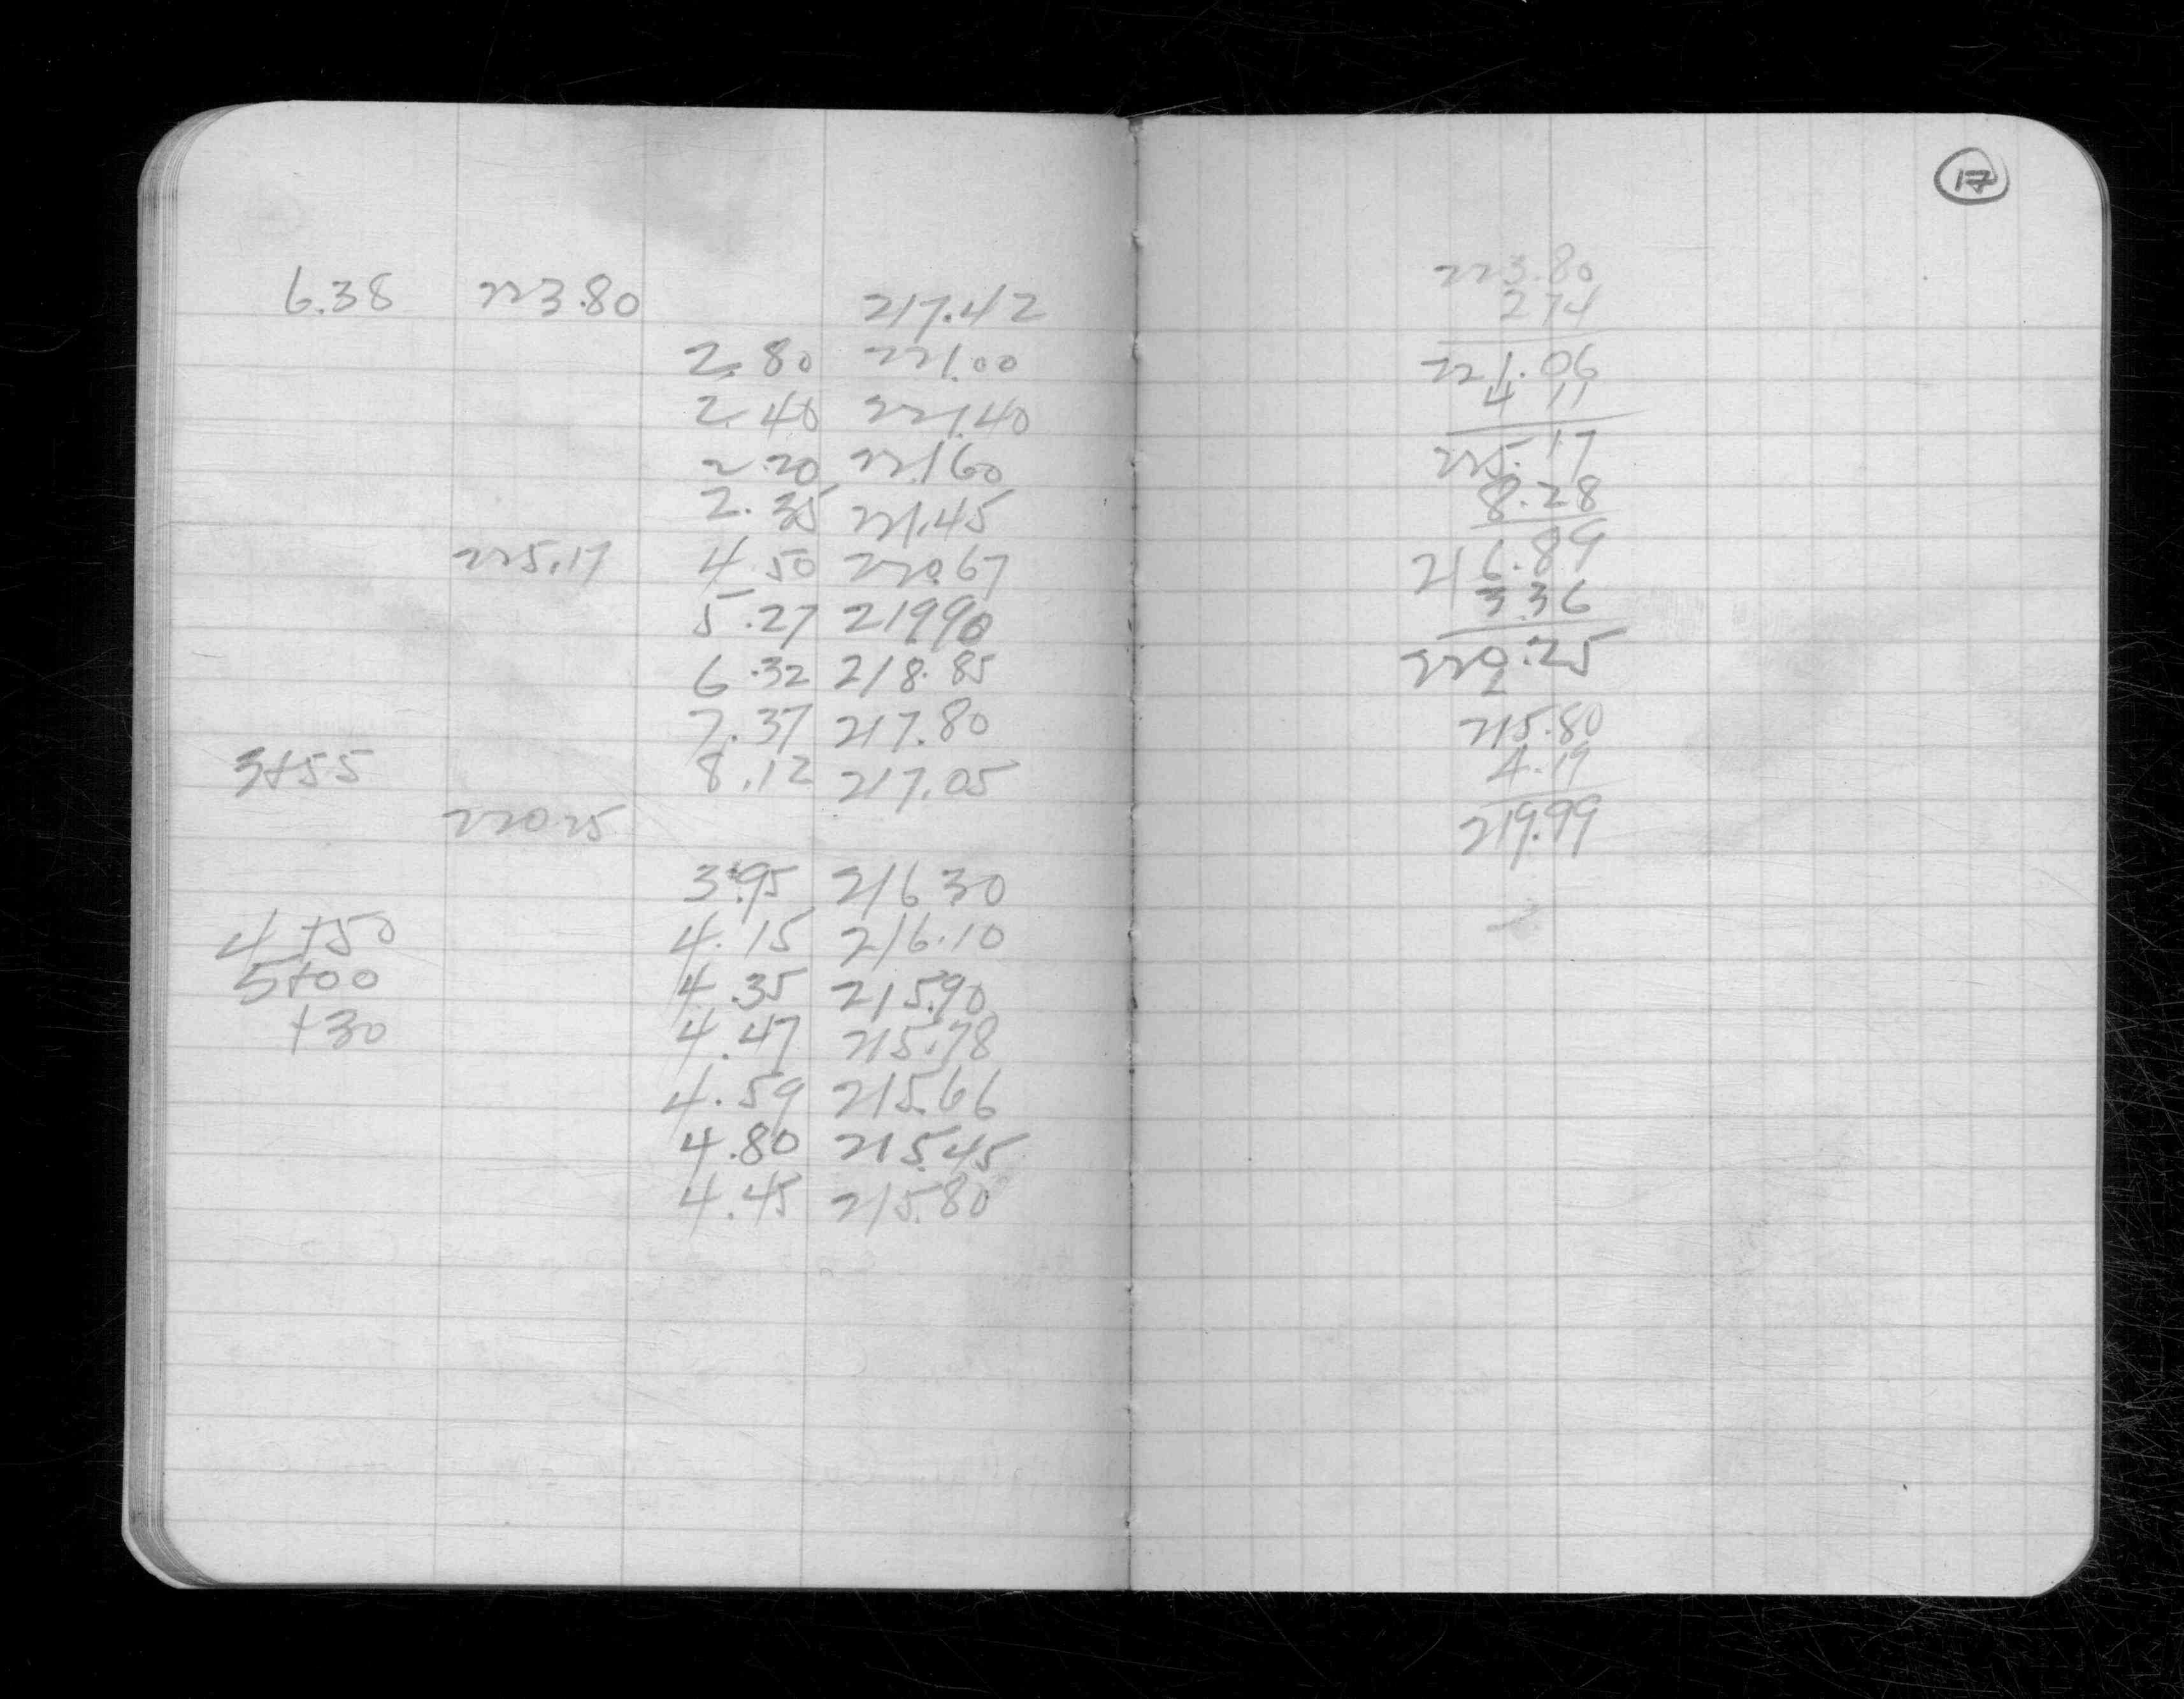 6.38 223.80 217.42
2.80 221.00
2.40 221.40
2.20 221.60
2.35 221.45
225.17 4.50 220.67
5.27 219 90
6.32 218.85
7.37 217.80
3+55 8.12 217.05
220 25
3.95 216 30
4+50 4.15 216.10
5+00 4.35 215.90
+30 4.47 215.78
4.59 215.66
4.80 215.45
4.45 215.80
17
223.80
2 74
221.06
4 11
225.17
8.28
216.89
3.36
220.25
215.80
4.19
219.99